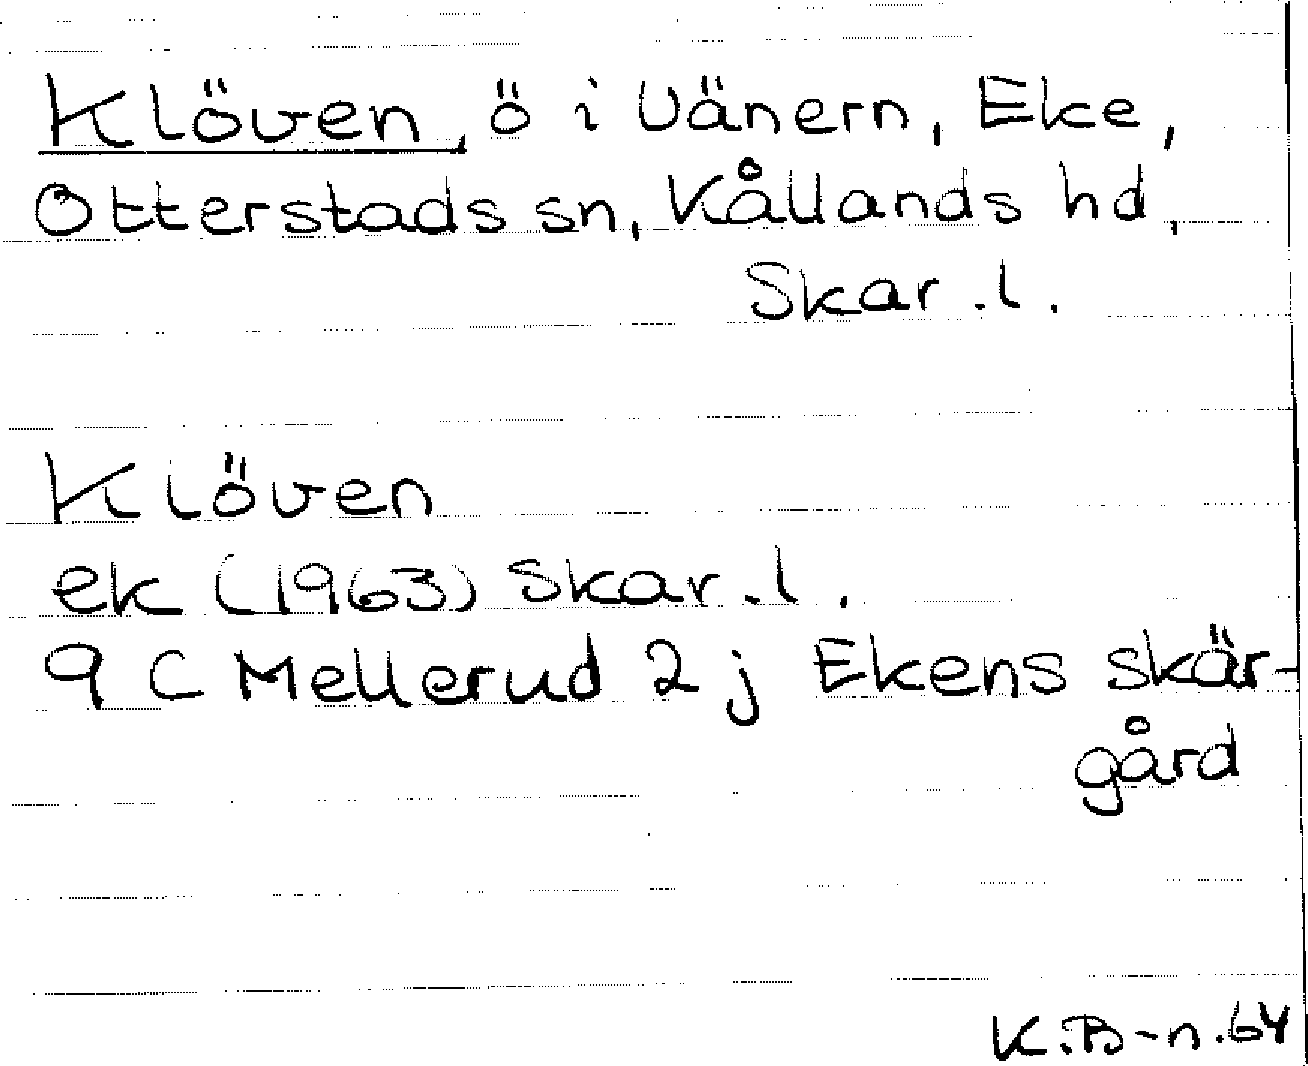 Klöven, ö i Vänern, Eke,
Otterstads sn, Kållands hd,
Skar.l.
Klöven
ek (1963) Skar.l.
9 C Mellerud 2 j Ekens skär-
gård
K.B-n.64